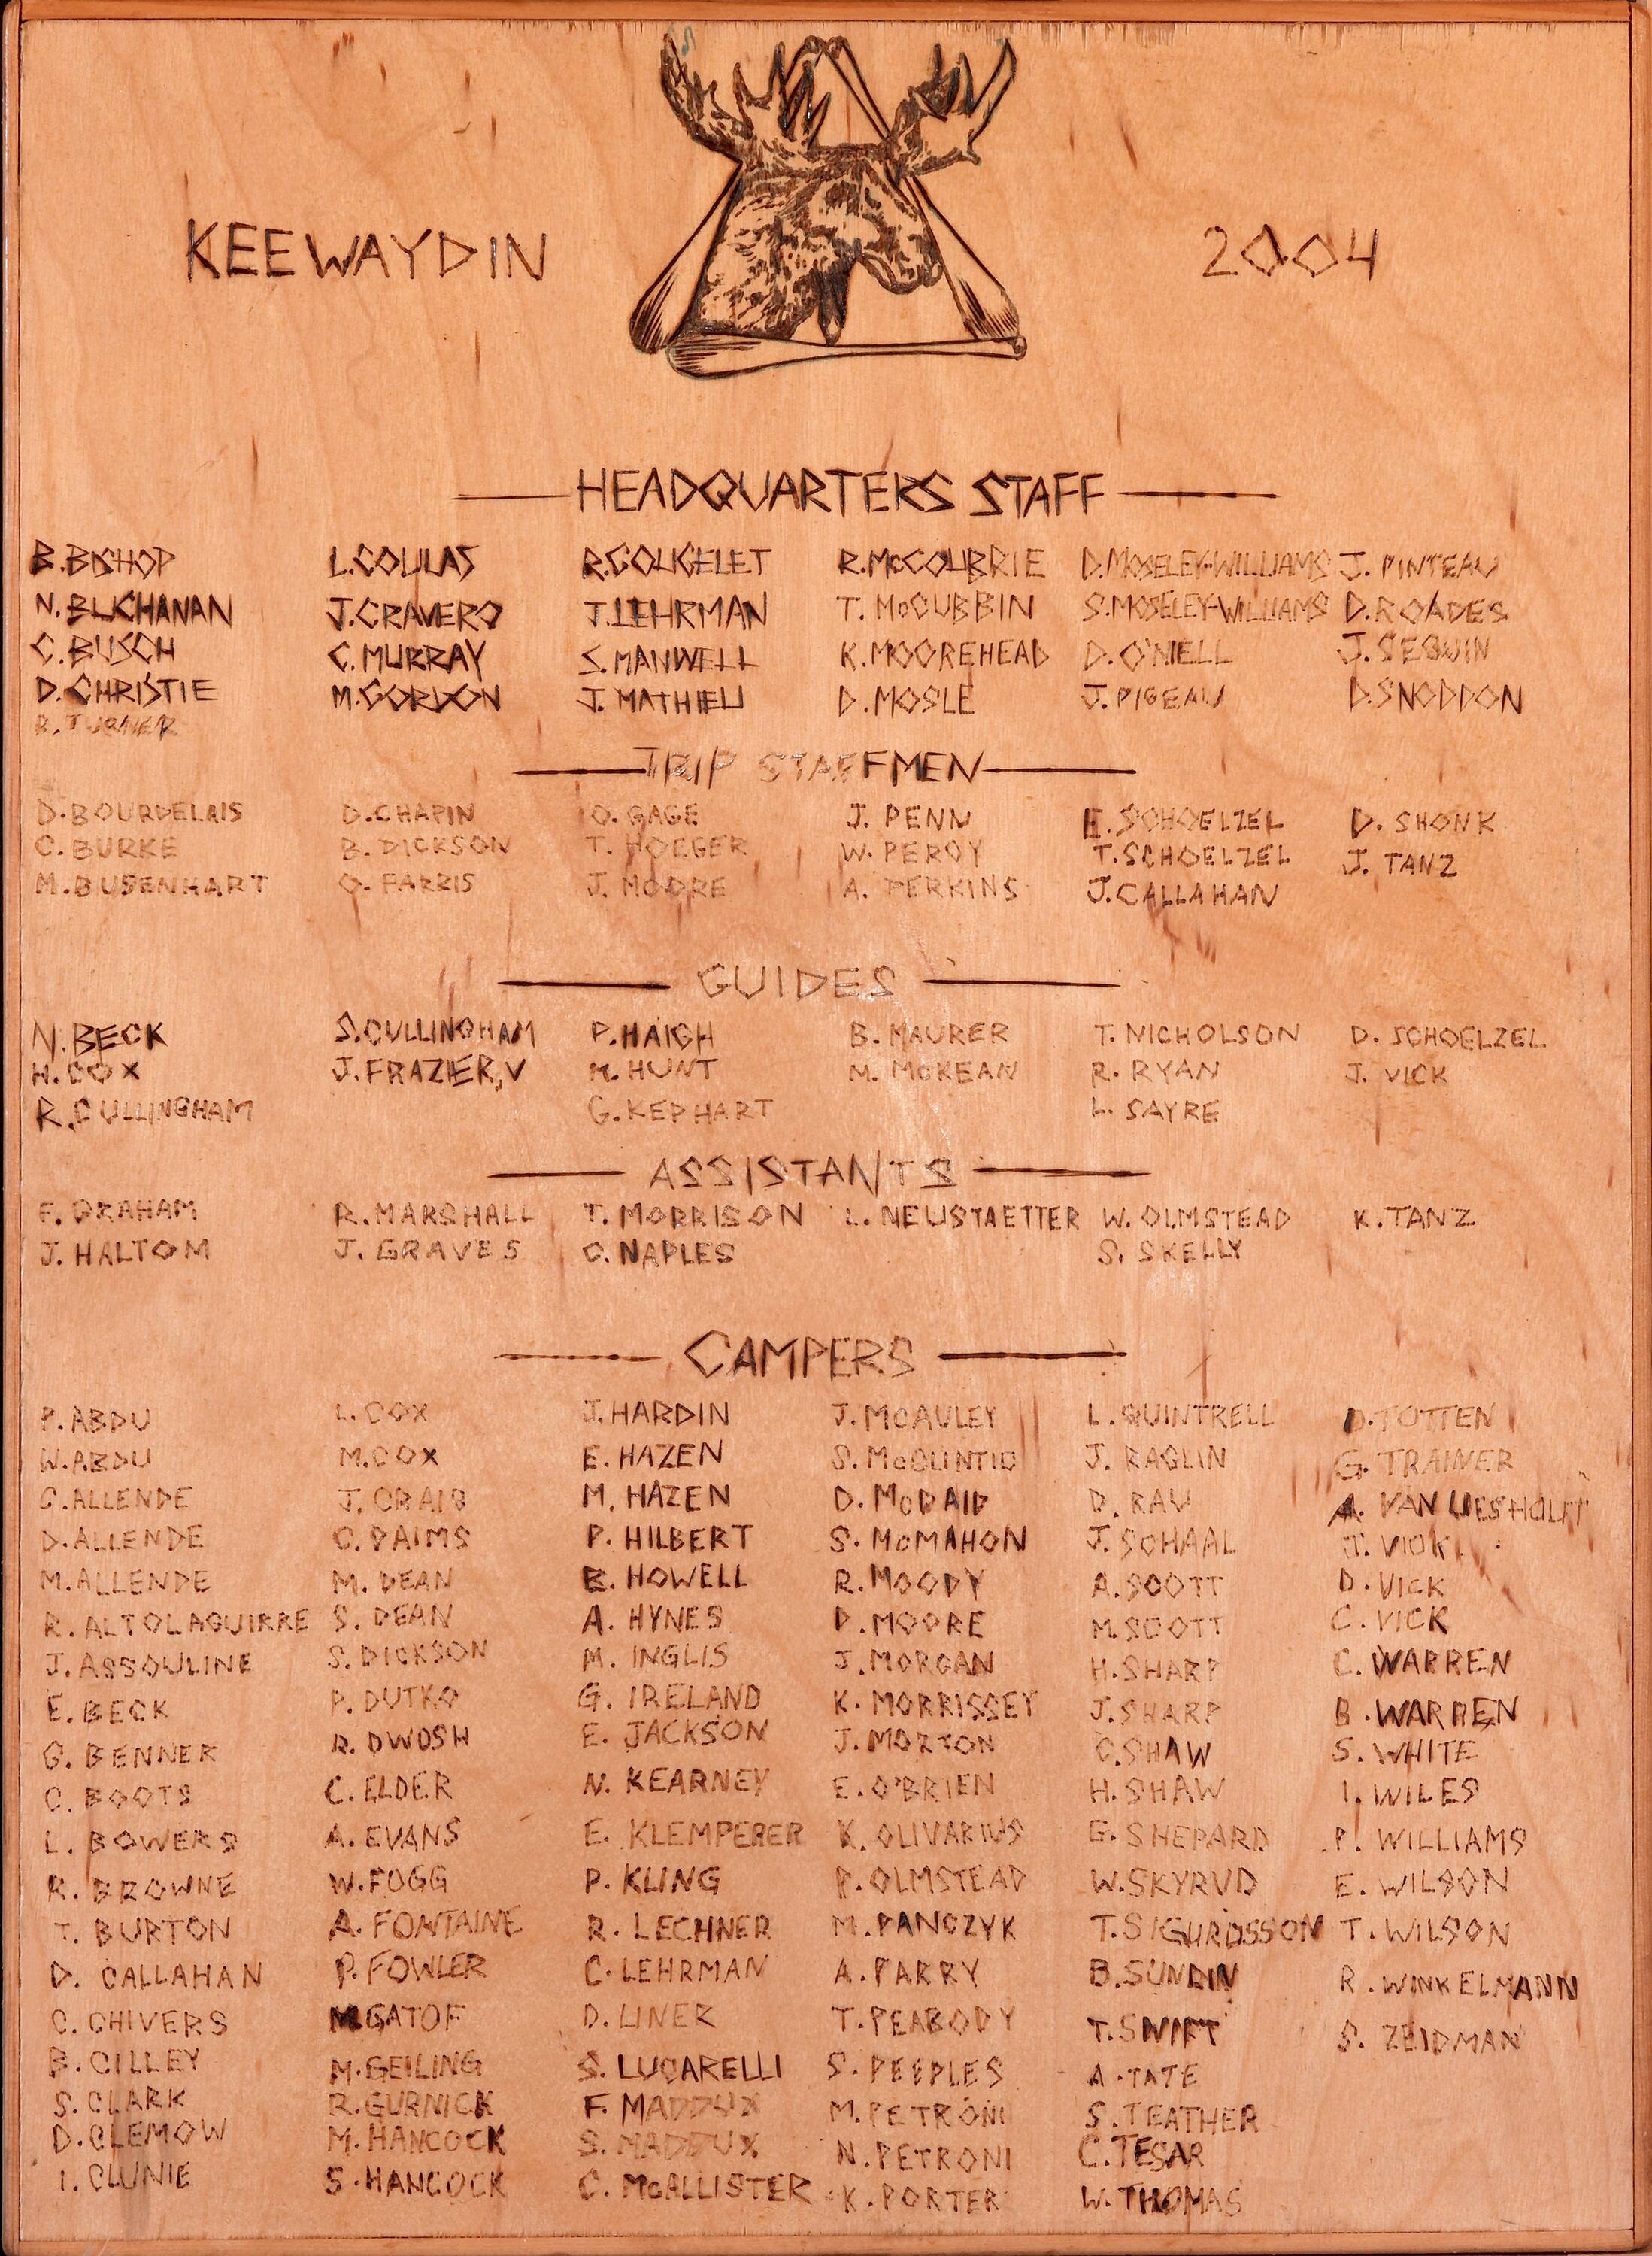 KEEWAYDIN 2004
HEADQUARTERS STAFF
B. BISHOP L. COULAS R. GOUGELET R. McCOUBRIE D. MOSELEY-WILLIAMS J. PINTEAU
N. BUCHANAN J. CRAVERO J. LEHRMAN T. McCUBBIN S. MOSELEY-WILLIAMS D. ROADES
C. BUSCH C. MURRAY S. MANWELL K. MOOREHEAD D. O'NIELL J. SEQUIN
D. CHRISTIE M. GORDON J. MATHIEU D. MOSLE J. PIGEAU D. SNODDON
R. TURNER
TRIP STAFFMEN
D. BOURDELAIS D. CHAPIN O. GAGE J. PENN E. SCHOELZEL D. SHONK
C. BURKE B. DICKSON T. HOEGER W. PEROY T. SCHOELZEL J. TANZ
M. BUSENHART O. FARRIS J. MOORE A. PERKINS J. CALLAHAN
GUIDES
N. BECK S. CULLINGHAM P. HAIGH B. MAURER T. NICHOLSON D. SCHOELZEL
H. COX J. FRAZIER, V M. HUNT M. McKEAN R. RYAN J. VICK
R. CULLINGHAM G. KEPHART L. SAYRE
ASSISTANTS
F. GRAHAM R. MARSHALL T. MORRISON L. NEUSTAETTER W. OLMSTEAD K. TANZ
J. HALTOM J. GRAVES C. NAPLES S. SKELLY
CAMPERS
P. ABDU L. COX J. HARDIN J. McAULEY L. QUINTRELL D. TOTTEN
W. ABDU M. COX E. HAZEN S. McCLINTIC J. RAGLIN G. TRAINER
C. ALLENDE J. CRAIG M. HAZEN D. McDAID D. RAU A. VAN
D. ALLENDE C. DAIMS P. HILBERT S. McMAHON J. SCHAAL J. VICK
M. ALLENDE M. DEAN B. HOWELL R. MOODY A. SCOTT D. VICK
R. ALTOLAGUIRRE S. DEAN A. HYNES D. MOORE M. SCOTT C. VICK
J. ASSOULINE S. DICKSON M. INGLIS J. MORGAN H. SHARP C. WARREN
E. BECK P. DUTKO G. IRELAND K. MORRISSEY J. SHARP B. WARREN
G. BENNER R. DWOSH E. JACKSON J. MORTON C. SHAW S. WHITE
C. BOOTS C. ELDER N. KEARNEY E. O'BRIEN H. SHAW I. WILES
L. BOWERS A. EVANS E. KLEMPERER K. OLIVARIUS G. SHEPARD P. WILLIAMS
R. BROWNE W. FOGG P. KLING P. OLMSTEAD W. SKYRUD E. WILSON
T. BURTON A. FONTAINE R. LECHNER M. PANCZYK T. SIGURDSSON T. WILSON
D. CALLAHAN P. FOWLER C. LEHRMAN A. PARRY B. SUNDIN R. WINKELMANN
C. CHIVERS M. GATOF D. LINER T. PEABODY T. SWIFT S. ZEIDMAN
B. CILLEY M. GEILING S. LUCARELLI S. PEEPLES A. TATE
S. CLARK R. GURNICK F. MADDUX M. PETRONI S. TEATHER
D. CLEMOW M. HANCOCK S. MADDUX N. PETRONI C. TESAR
I. CLUNIE S. HANCOCK C. McALLISTER K. PORTER W. THOMAS